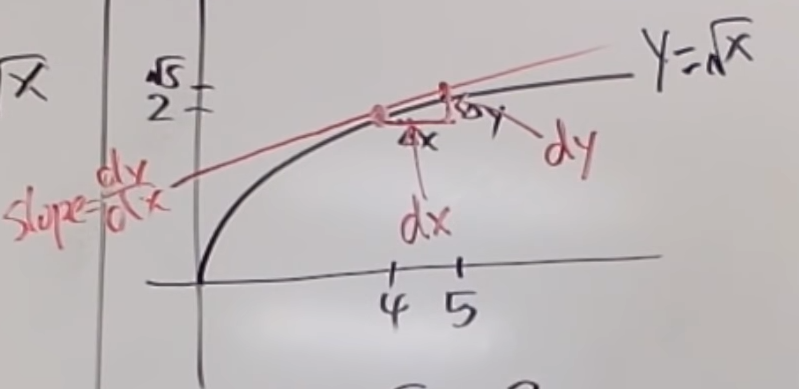 √x
y=√x
√5
2
Δy
Δx
dy
slope=dy/dx
dx
4 5